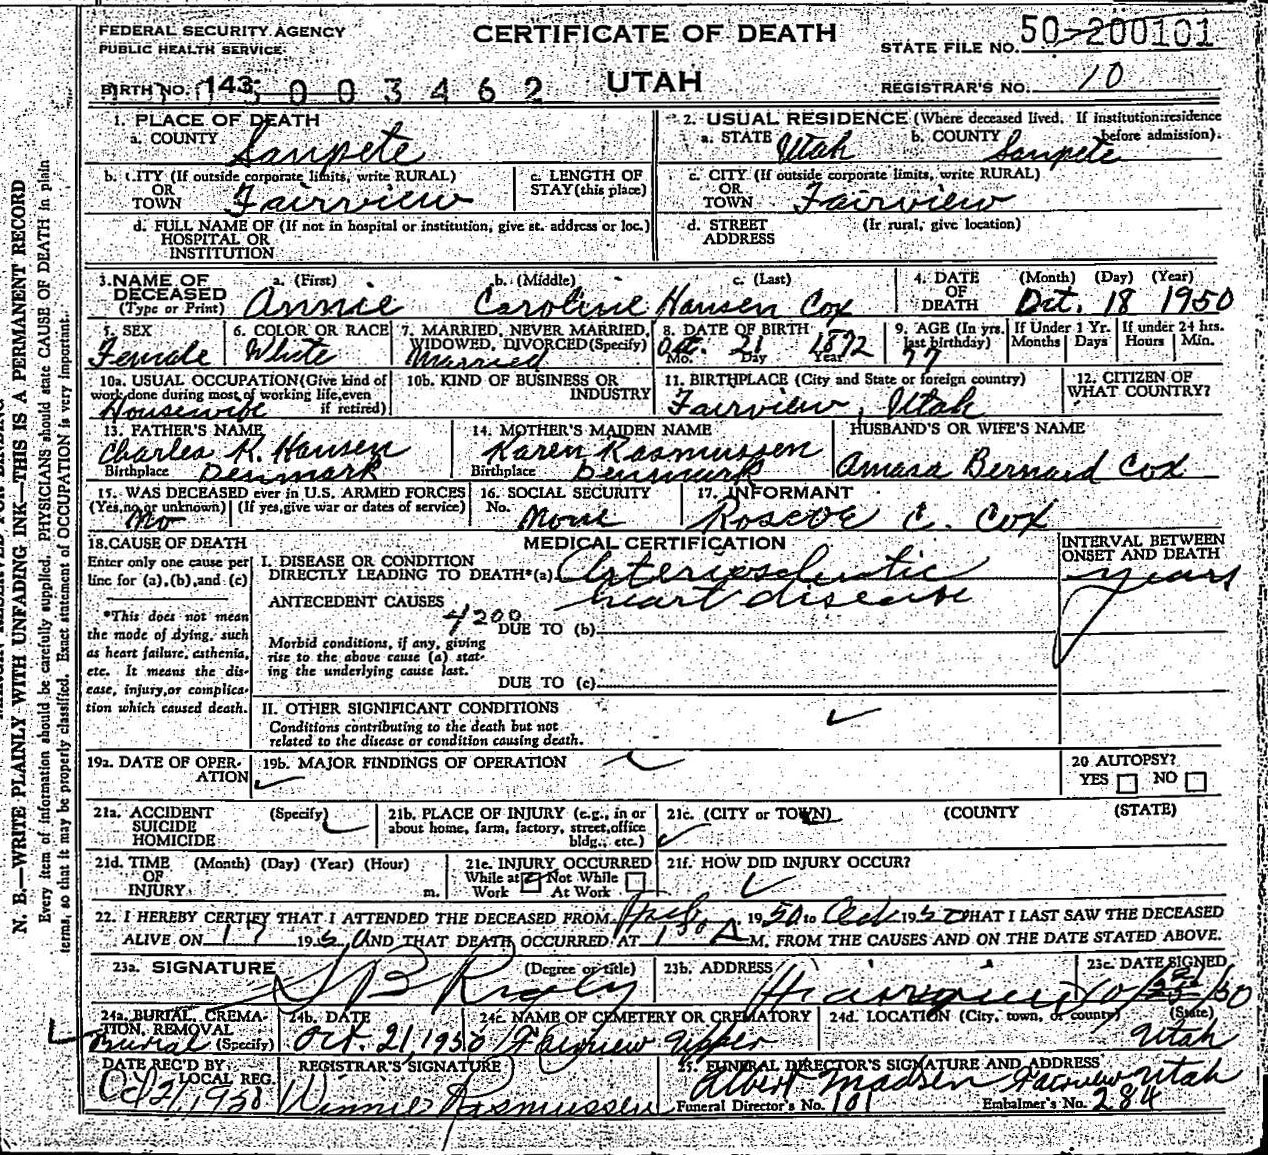 FEDERAL SECURITY AGENCY
PUBLIC HEALTH SERVICE
CERTIFICATE OF DEATH
STATE FILE NO. 50-200101
BIRTH NO. 143 5 0 0 3 4 6 2
UTAH
REGISTRAR'S NO. 10
1. PLACE OF DEATH
a. COUNTY Sanpete
2. USUAL RESIDENCE (Where deceased lived. If institution: residence before admission).
a. STATE Utah b. COUNTY Sanpete
b. CITY (If outside corporate limits, write RURAL)
OR
TOWN Fairview
c. LENGTH OF
STAY (this place)
c. CITY (If outside corporate limits, write RURAL)
OR
TOWN Fairview
d. FULL NAME OF (If not in hospital or institution, give st. address or loc.)
HOSPITAL OR
INSTITUTION
d. STREET (If rural, give location)
ADDRESS
3. NAME OF DECEASED (Type or Print)
a. (First) b. (Middle) c. (Last)
Annie Caroline Hansen Cox
4. DATE OF DEATH (Month) (Day) (Year)
Oct. 18 1950
5. SEX
Female
6. COLOR OR RACE
White
7. MARRIED, NEVER MARRIED, WIDOWED, DIVORCED (Specify)
Married
8. DATE OF BIRTH
Oct. 21 1872
Mo. Day Year
9. AGE (In yrs. last birthday)
77
If Under 1 Yr.
Months Days
If under 24 hrs.
Hours Min.
10a. USUAL OCCUPATION (Give kind of work done during most of working life, even if retired)
Housewife
10b. KIND OF BUSINESS OR INDUSTRY
11. BIRTHPLACE (City and State or foreign country)
Fairview, Utah
12. CITIZEN OF WHAT COUNTRY?
13. FATHER'S NAME
Charles K. Hansen
Birthplace Denmark
14. MOTHER'S MAIDEN NAME
Karen Rasmussen
Birthplace Denmark
HUSBAND'S OR WIFE'S NAME
Amasa Bernard Cox
15. WAS DECEASED ever in U.S. ARMED FORCES
(Yes, no, or unknown) (If yes, give war or dates of service)
No
16. SOCIAL SECURITY
No. None
17. INFORMANT
Roscoe C. Cox
18. CAUSE OF DEATH
Enter only one cause per line for (a), (b), and (c)
*This does not mean the mode of dying, such as heart failure, asthenia, etc. It means the disease, injury, or complication which caused death.
MEDICAL CERTIFICATION
INTERVAL BETWEEN ONSET AND DEATH
I. DISEASE OR CONDITION
DIRECTLY LEADING TO DEATH*(a) Arteriosclerotic years
heart disease
ANTECEDENT CAUSES
4200
DUE TO (b)
Morbid conditions, if any, giving rise to the above cause (a) stating the underlying cause last.
DUE TO (c)
II. OTHER SIGNIFICANT CONDITIONS
Conditions contributing to the death but not related to the disease or condition causing death.
19a. DATE OF OPERATION
19b. MAJOR FINDINGS OF OPERATION
20 AUTOPSY?
YES NO
21a. ACCIDENT (Specify)
SUICIDE
HOMICIDE
21b. PLACE OF INJURY (e.g., in or about home, farm, factory, street, office bldg., etc.)
21c. (CITY or TOWN) (COUNTY) (STATE)
21d. TIME (Month) (Day) (Year) (Hour)
OF
INJURY m.
21e. INJURY OCCURRED
While at Work Not While At Work
21f. HOW DID INJURY OCCUR?
22. I HEREBY CERTIFY THAT I ATTENDED THE DECEASED FROM Feb 1950 to Oct 1950 THAT I LAST SAW THE DECEASED
ALIVE ON 17 1950 AND THAT DEATH OCCURRED AT A M. FROM THE CAUSES AND ON THE DATE STATED ABOVE.
23a. SIGNATURE (Degree or title)
23b. ADDRESS
Fairview
23c. DATE SIGNED
24a. BURIAL, CREMATION, REMOVAL (Specify)
Burial
24b. DATE
Oct. 21, 1950
24c. NAME OF CEMETERY OR CREMATORY
Fairview Upper
24d. LOCATION (City, town, or county) (State)
Utah
DATE REC'D BY LOCAL REG.
Oct 21, 1950
REGISTRAR'S SIGNATURE
Winnie Rasmussen
25. FUNERAL DIRECTOR'S SIGNATURE AND ADDRESS
Albert Madsen Fairview Utah
Funeral Director's No. 101 Embalmer's No. 284
N. B.—WRITE PLAINLY WITH UNFADING INK—THIS IS A PERMANENT RECORD
Every item of information should be carefully supplied. PHYSICIANS should state CAUSE OF DEATH in plain
terms, so that it may be properly classified. Exact statement of OCCUPATION is very important.